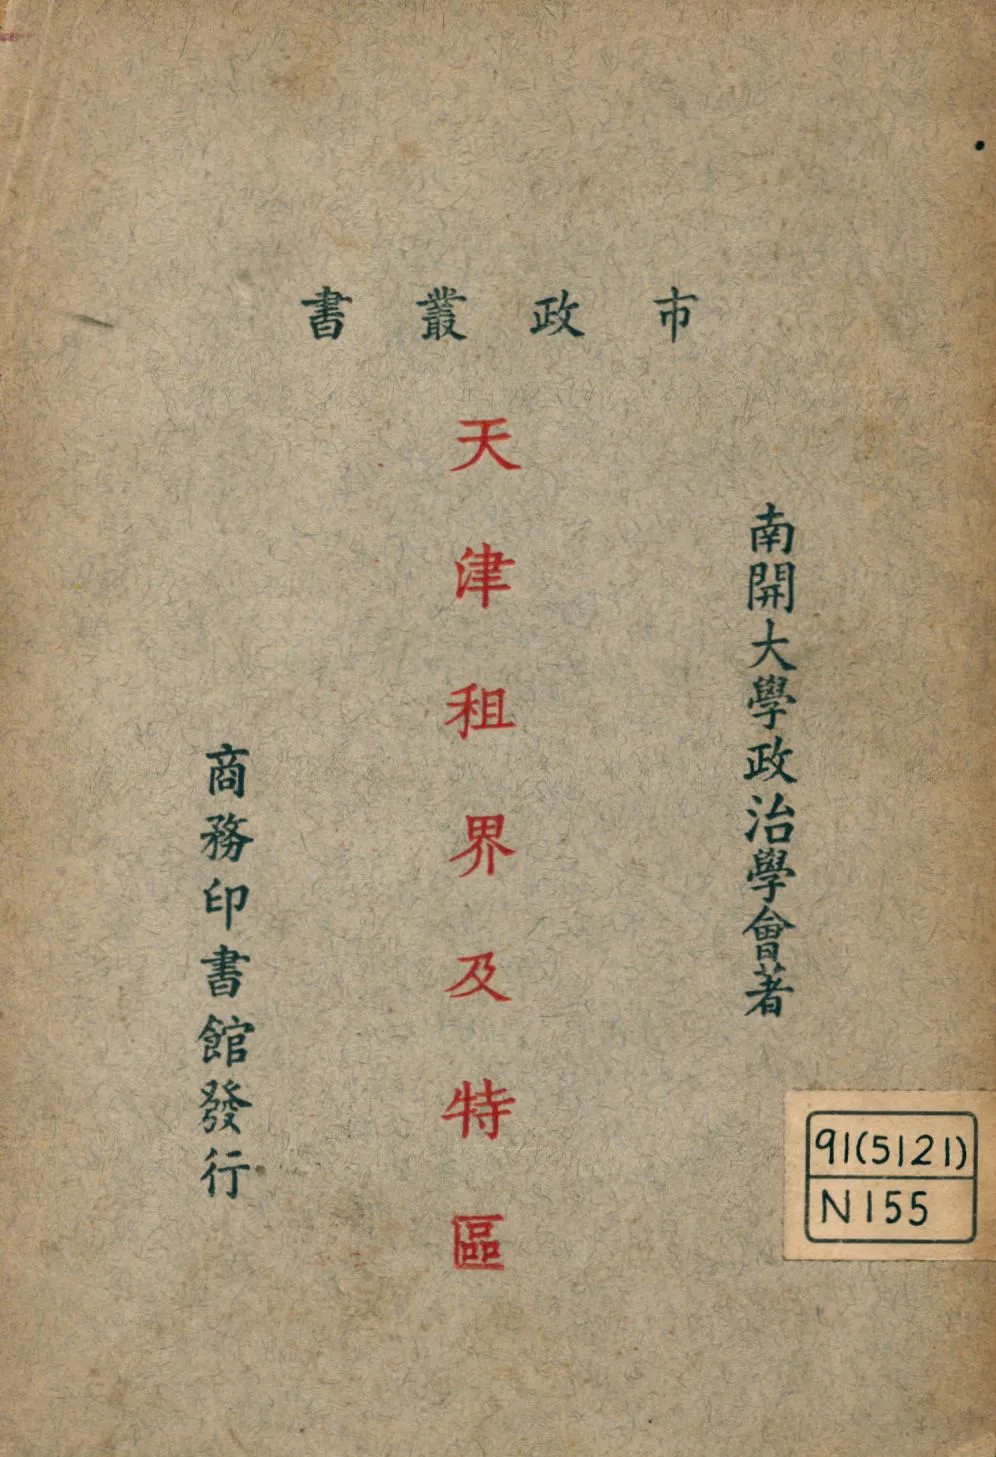 市政叢書
南開大學政治學會著
天津租界及特區
商務印書館發行
91(5121)
N155